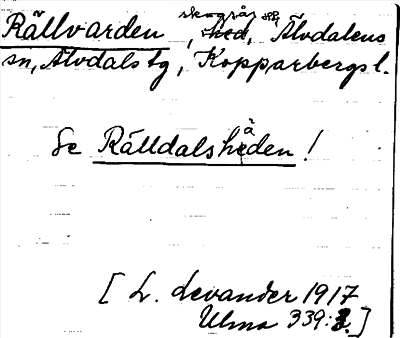 Rällvarden, skogsås, Älvdalens
sn, Älvdals tg, Kopparbergs l.
Se Rälldalsheden!
[L. Levander 1917
Ulma 339:2.]